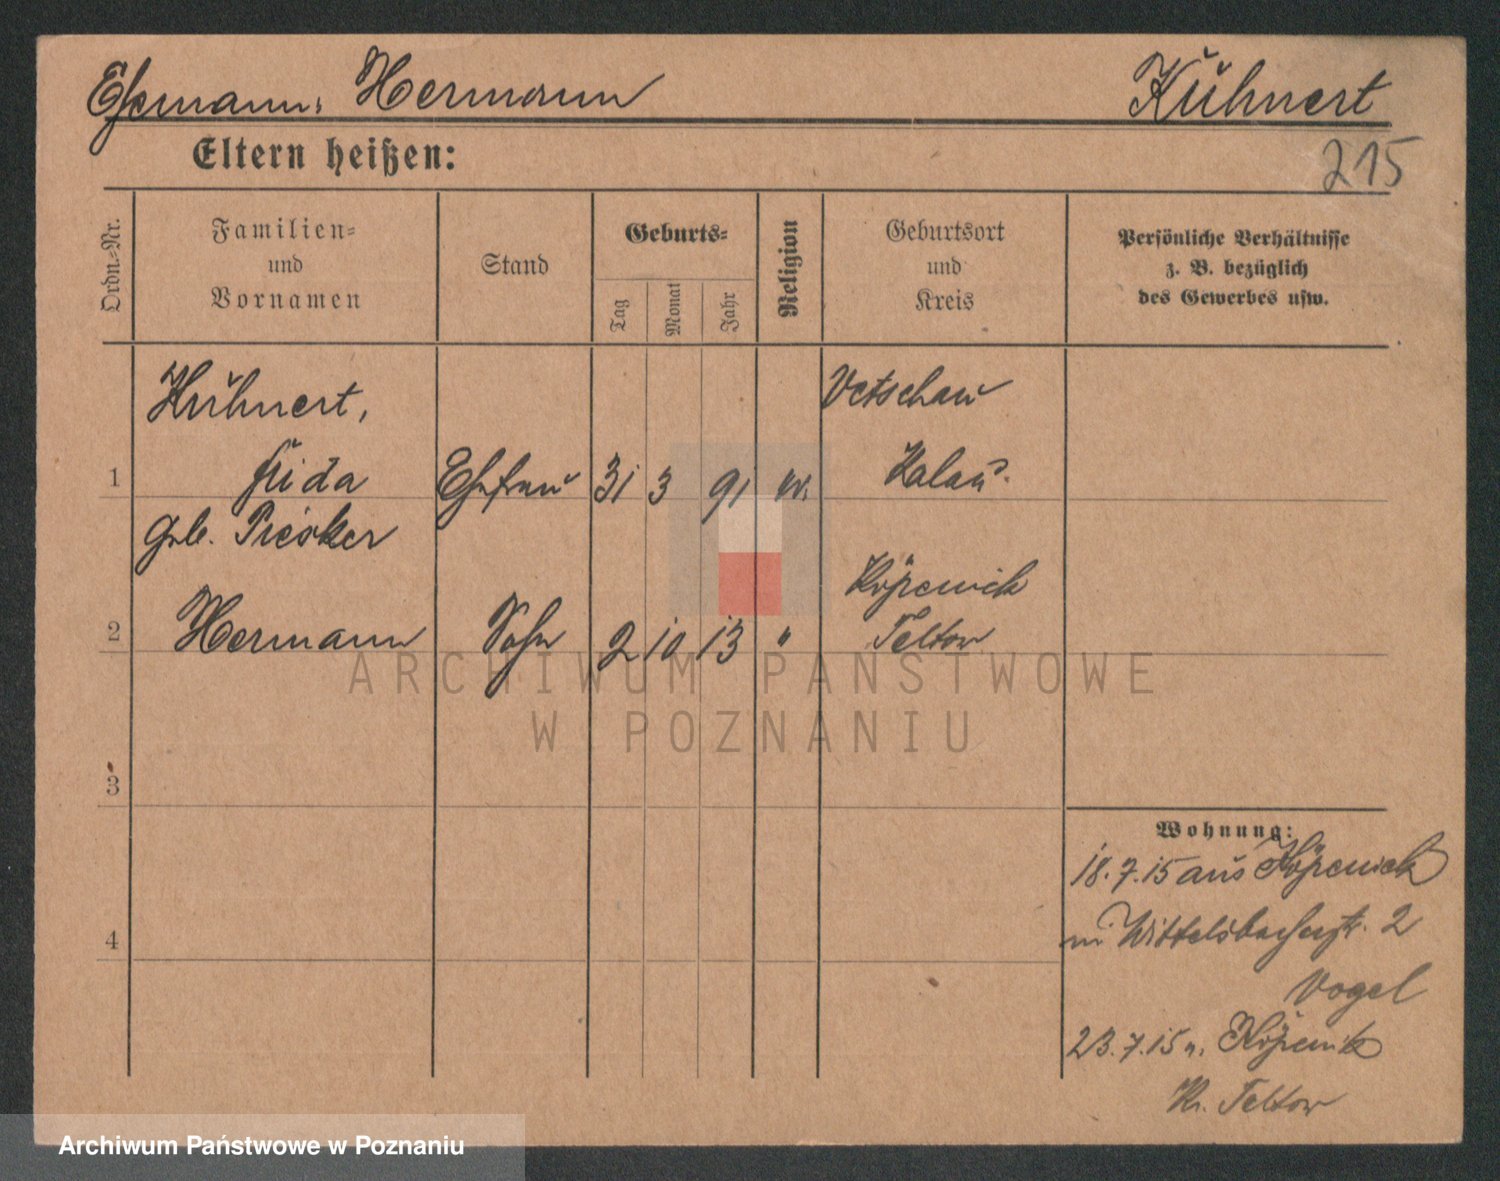 Ehemann: Hermann Kühnert
Eltern heißen:
215
Ordn.-Nr.
Familien-
und
Vornamen
Stand
Geburts-
Tag
Monat
Jahr
Religion
Geburtsort
und
Kreis
Persönliche Verhältnisse
z. B. bezüglich
des Gewerbes usw.
Kühnert, Vetschau
1 Frida Ehefrau 31 3 91 ev. Kalau
geb. Piesker
Köpenick
2 Hermann Sohn 2 10 13 " Teltow
3
4
Wohnung:
18.7.15 aus Köpenick
Wittelsbacherstr. 2
Vogel
23.7.15 n. Köpenick
Kr. Teltow
ARCHIWUM PAŃSTWOWE
W POZNANIU
Archiwum Państwowe w Poznaniu